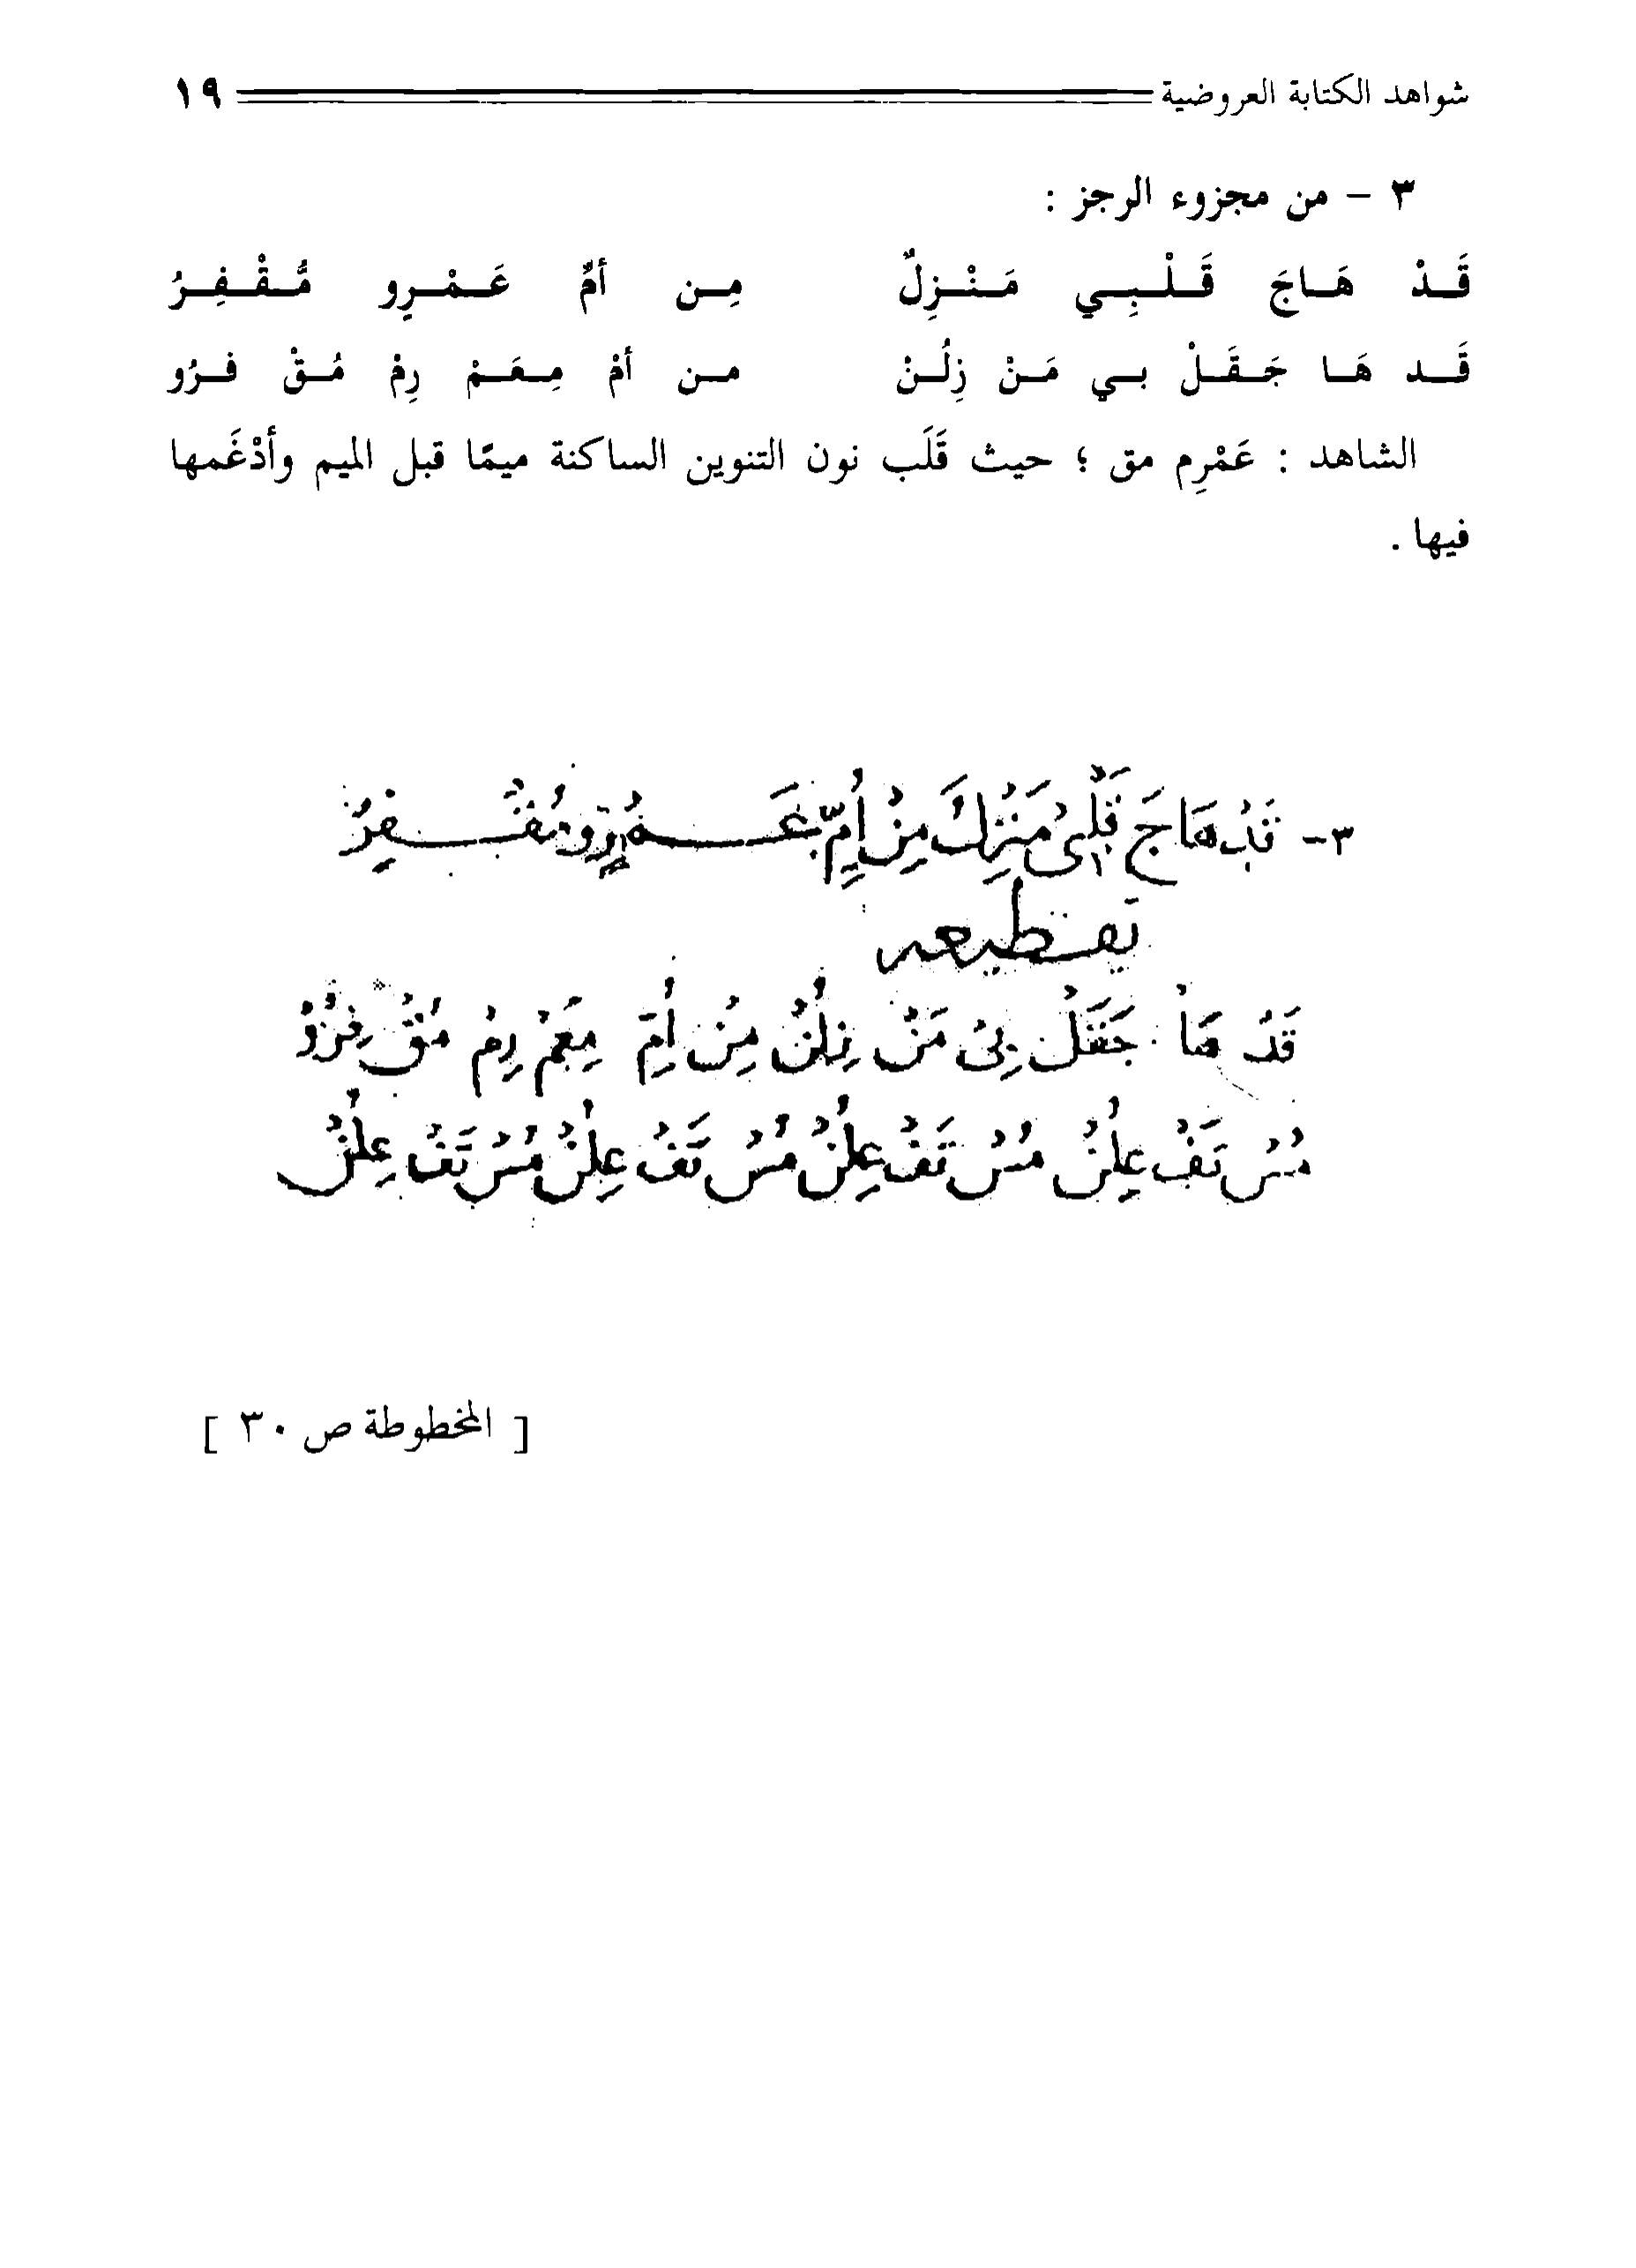 شواهد الكتابة العروضية ١٩
٣ – من مجزوء الرجز :
قَـدْ هَـاجَ قَـلْـبِـي مَـنْـزِلٌ مِـن أمِّ عَـمْـرِو مُّـقْـفِـرُ
قَـد هَـا جَـقَـلْ بـي مَـنْ زِلُـنْ مـن أمْ مِـعَـمْ رِمْ مُـقْ فـرُو
الشاهد : عَمْرِم مق ؛ حيث قَلَب نون التنوين الساكنة ميمًا قبل الميم وأدْغَمها
فيها .
٣- قَدْ هَاجَ قَلْبِىْ مَنْزِلٌ مِنْ أُمِّ عَـمْرٍو مُقْـفِرُ
تقطيعه
قَدْ هَاْ جَقَلْ بِىْ مَنْ زِلُنْ مِنْ أُمْ مِعَمْ رِمْ مُقْ فِرُوْ
مُسْ تَفْ عِلُنْ مُسْ تَفْ عِلُنْ مُسْ تَفْ عِلُنْ مُسْ تَفْ عِلُنْ
[ المخطوطة ص ٣٠ ]